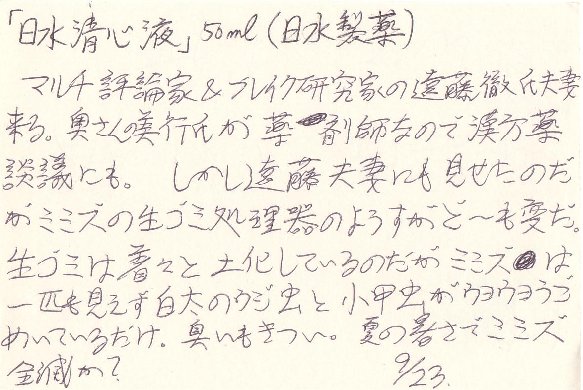 「日水清心液」50ml(日水製薬)
マルチ評論家&ブレイク研究家の遠藤徹氏夫妻
来る。奥さんの美行氏が薬剤師なので漢方薬
談議にも。しかし遠藤夫妻にも見せたのだ
がミミズの生ゴミ処理器のようすがど〜も変だ。
生ゴミは着々と土化しているのだがミミズは
一匹も見えず白太のウジ虫と小甲虫がウヨウヨうご
めいているだけ。臭いもきつい。夏の暑さでミミズ
全滅か? 9/23